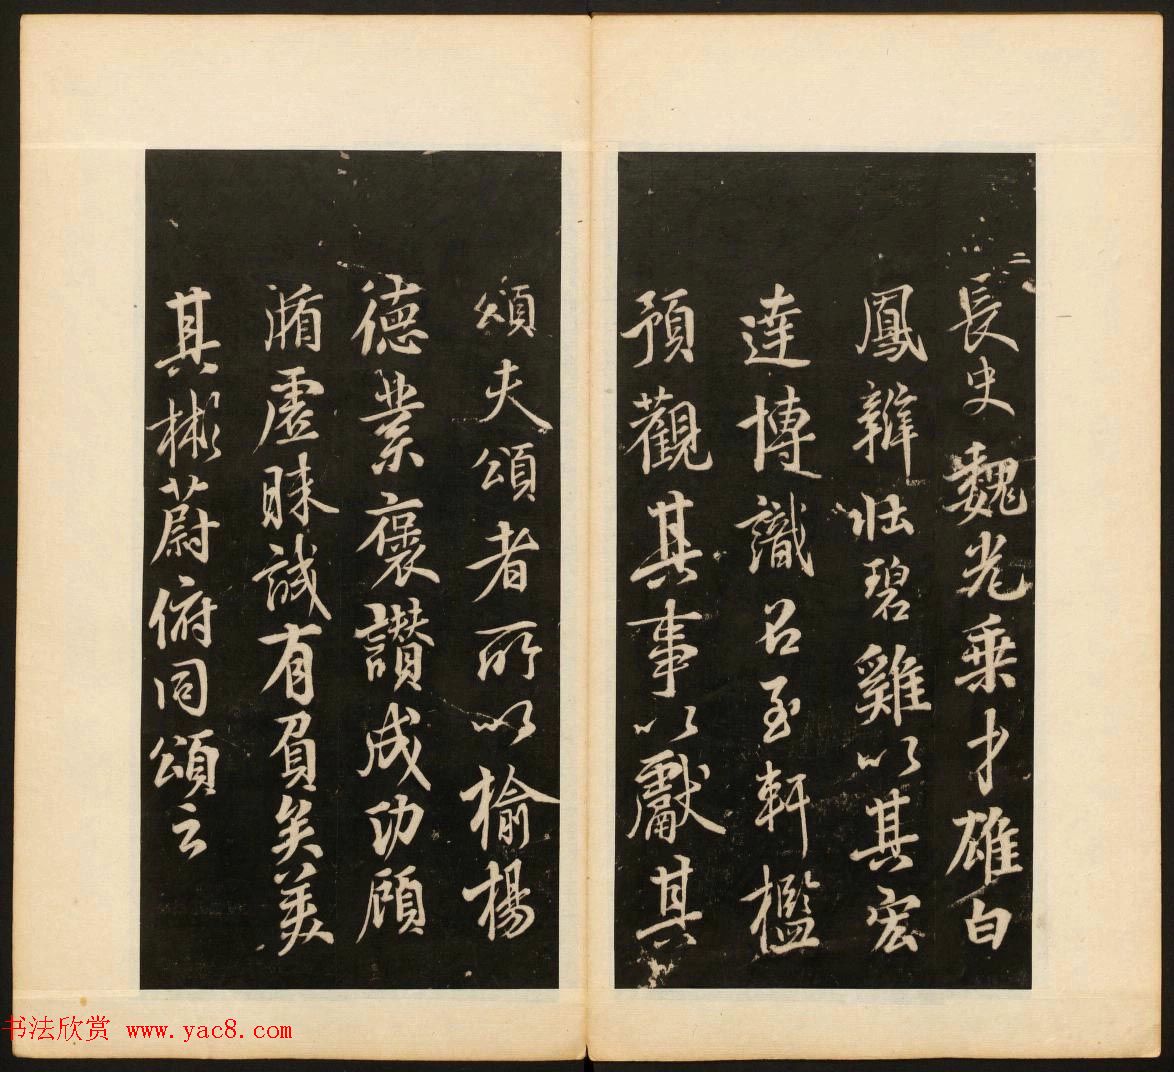 二
長史魏光乘才雄白
鳳辯壯碧雞以其宏
達博識召至軒檻
預觀其事以獻其
頌夫頌者所以揄揚
德業褒讚成功顧
循虛昧誠有負矣美
其彬蔚俯同頌云
书法欣赏 www.yac8.com